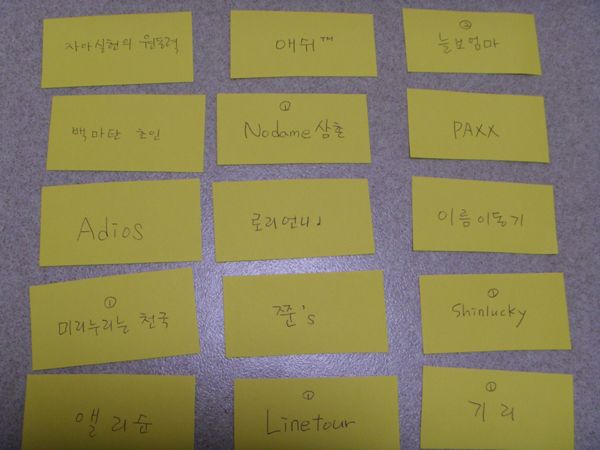 자아실현의 원동력
애쉬™
③
늘보엄마
백마탄 초인
①
Nodame 삼촌
PAXX
Adios
로리언니♩
이름이동기
①
미리누리는 천국
쭌's
①
Shinlucky
앨리순
①
Linetour
①
기리